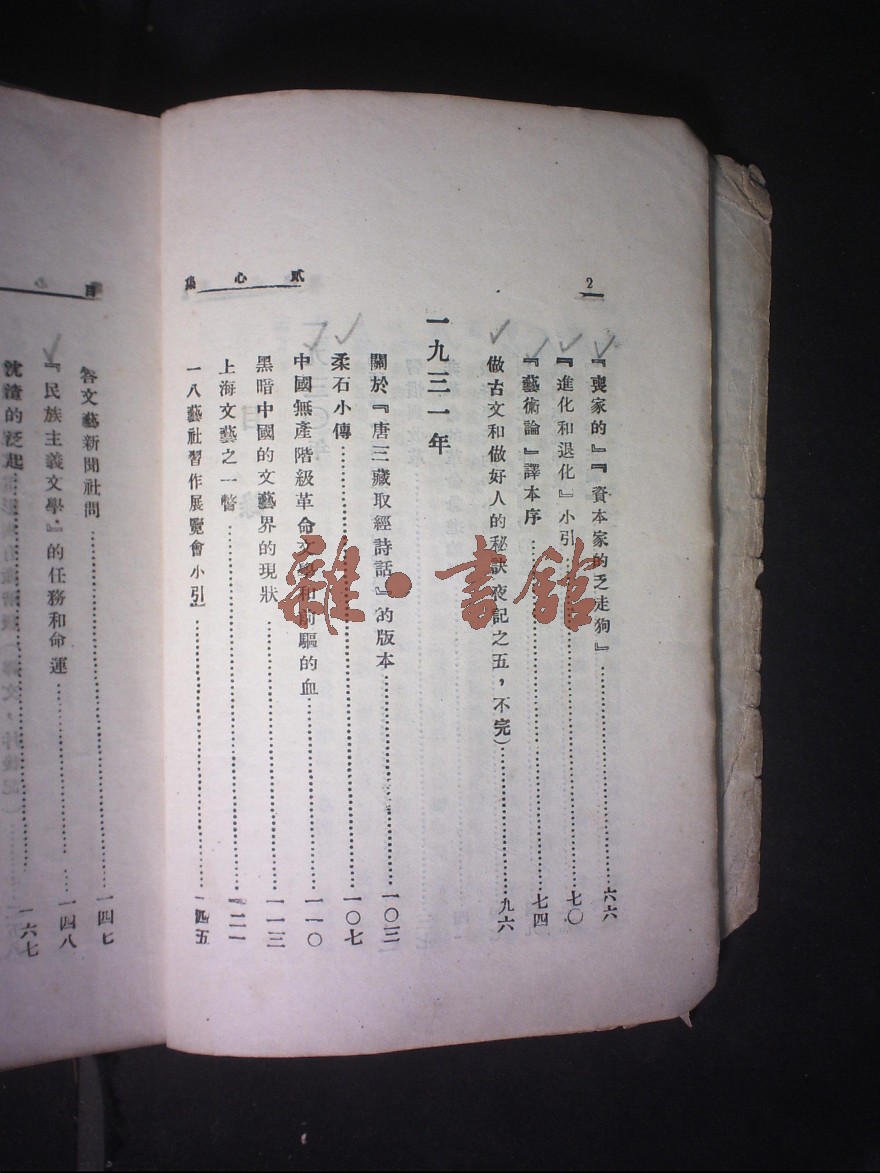 2
貳心集
『喪家的』『資本家的乏走狗』……六六
『進化和退化』小引……七〇
『藝術論』譯本序……七四
做古文和做好人的秘訣（夜記之五，不完）……九六
一九三一年
關於『唐三藏取經詩話』的版本……一〇三
柔石小傳……一〇七
中國無產階級革命文學和前驅的血……一一〇
黑暗中國的文藝界的現狀……一一三
上海文藝之一瞥……一二一
一八藝社習作展覽會小引……一四五
目
答文藝新聞社問……一四七
『民族主義文學』的任務和命運……一四八
沈滓的泛起……一六七
雜·書館